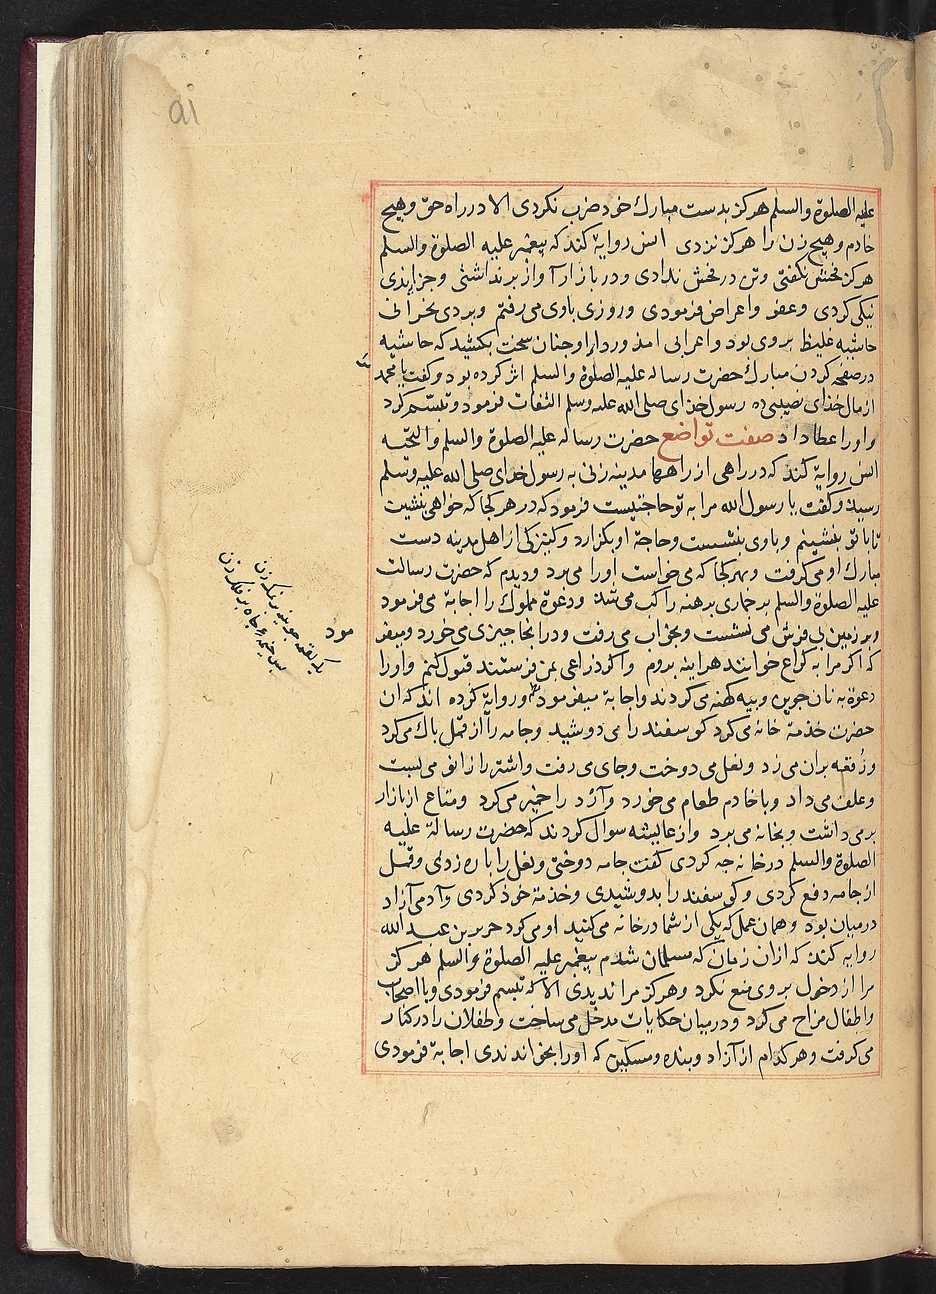 علیه الصلوة والسلم هرکز بدست مبارك خود ضرب نکردی الا در راه حق وهیچ
خادم وهیچ زن را هرکز نزدی انس روایة کند که پیغمبر علیه الصلوة والسلم
هرکز فحش نکفتی وتن در فحش ندادی ودر بازار آواز برنداشتی وجزا بدی
نیکی کردی وعفو واعراض فرمودی وروزی باوی می رفتم وبردی نجرانی
حاشیه غلیظ بروی بود واعرابی امد ورداء او چنان سخت بکشید که حاشیه
در صفحه کردن مبارك حضرت رسالة علیه الصلوة والسلم اثر کرده بود وکفت یا محمد
از مال خدای نصیبی ده رسول خدای صلی الله علیه وسلم التفات فرمود وتبسم کرد
واورا عطا داد صفت تواضع حضرت رسالة علیه الصلوة والسلم والتحیة
انس روایة کند که در راهی از راهها مدینه زنی به رسول خدای صلی الله علیه وسلم
رسید وکفت یا رسول الله مرا به تو حاجتیست فرمود که در هر کجا که خواهی بنشین
تا با تو بنشینم وباوی بنشست وحاجة او بکزارد وکنیزکی از اهل مدینه دست
مبارك او می کرفت وبهر کجا که می خواست اورا می برد ودیدم که حضرت رسالت
علیه الصلوة والسلم بر خماری برهنه راکب می شد ودعوة مملوك را اجابة می فرمود
وبر زمین بی فرش می نشست وبخراب می رفت ودر انجا چیزی می خورد ومیفر
که اکر مرا به کراع خوانند هراینه بروم واکر ذراعی بمن فرستند قبول کنم واورا
دعوة به نان جوین وپیه کهنه می کردند واجابة میفرمود وروایة کرده اند که ان
حضرت خدمة خانه می کرد کوسفند را می دوشید وجامه را از قمل پاك می کرد
ورقعه بران می زد ونعل می دوخت وجای می رفت واشتر را زانو می بست
وعلف می داد وبا خادم طعام می خورد وآرد را خمیر می کرد ومتاع از بازار
بر می داشت وبخانه می برد واز عایشه سوال کردند که حضرت رسالة علیه
الصلوة والسلم در خانه چه کردی کفت جامه دوختی ونعل را پاره زدی وقمل
از جامه دفع کردی وکوسفند را بدوشیدی وخدمة خود کردی وآدمی آزاد
در میان بود وهمان عمل که یکی از شما در خانه می کنید او می کرد جریر بن عبد الله
روایه کند که ازان زمان که مسلمان شدم پیغمبر علیه الصلوة والسلم هرکز
مرا از دخول بروی منع نکرد وهرکز مرا ندیدی الا که تبسم فرمودی وبا اصحاب
واطفال مزاح می کرد ودر میان حکایات مدخل می ساخت وطفلان را در کنار
می کرفت وهر کدام از آزاد وبنده ومسکین که اورا بخواندندی اجابة فرمودی
مود
٩١